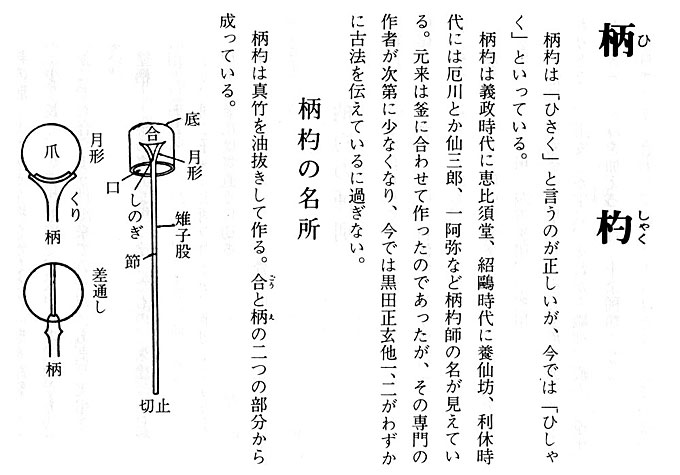 柄杓
ひしゃく
柄杓は「ひさく」と言うのが正しいが、今では「ひしゃ
く」といっている。
柄杓は義政時代に恵比須堂、紹鷗時代に養仙坊、利休時
代には厄川とか仙三郎、一阿弥など柄杓師の名が見えてい
る。元来は釜に合わせて作ったのであったが、その専門の
作者が次第に少なくなり、今では黒田正玄他一、二がわずか
に古法を伝えているに過ぎない。
柄杓の名所
柄杓は真竹を油抜きして作る。合と柄の二つの部分から
ごう
え
成っている。
底
合
月形
口
しのぎ
雉子股
節
切止
月形
爪
くり
柄
差通し
柄